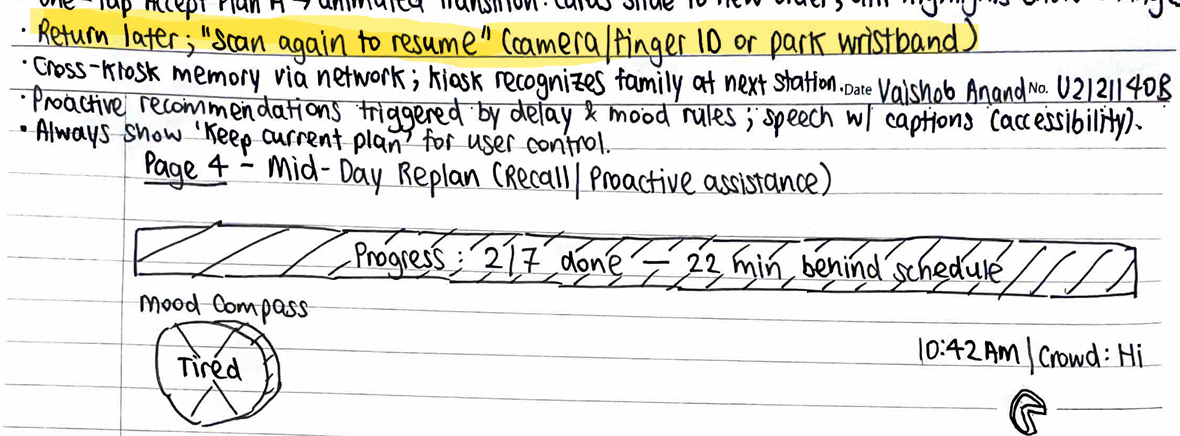 One-Tap Accept Plan A → animated transition: cards slide to new order;
• Return later; "Scan again to resume" (camera/finger ID or park wristband)
• Cross-kiosk memory via network; kiosk recognizes family at next station.
Date Vaishob Anand No. U2121140B
• Proactive recommendations triggered by delay & mood rules; speech w/ captions (accessibility).
• Always show 'Keep current plan' for user control.
Page 4 - Mid-Day Replan (Recall/Proactive assistance)
Progress: 2/7 done - 22 min behind schedule
Mood Compass
Tired
10:42 AM | Crowd: Hi